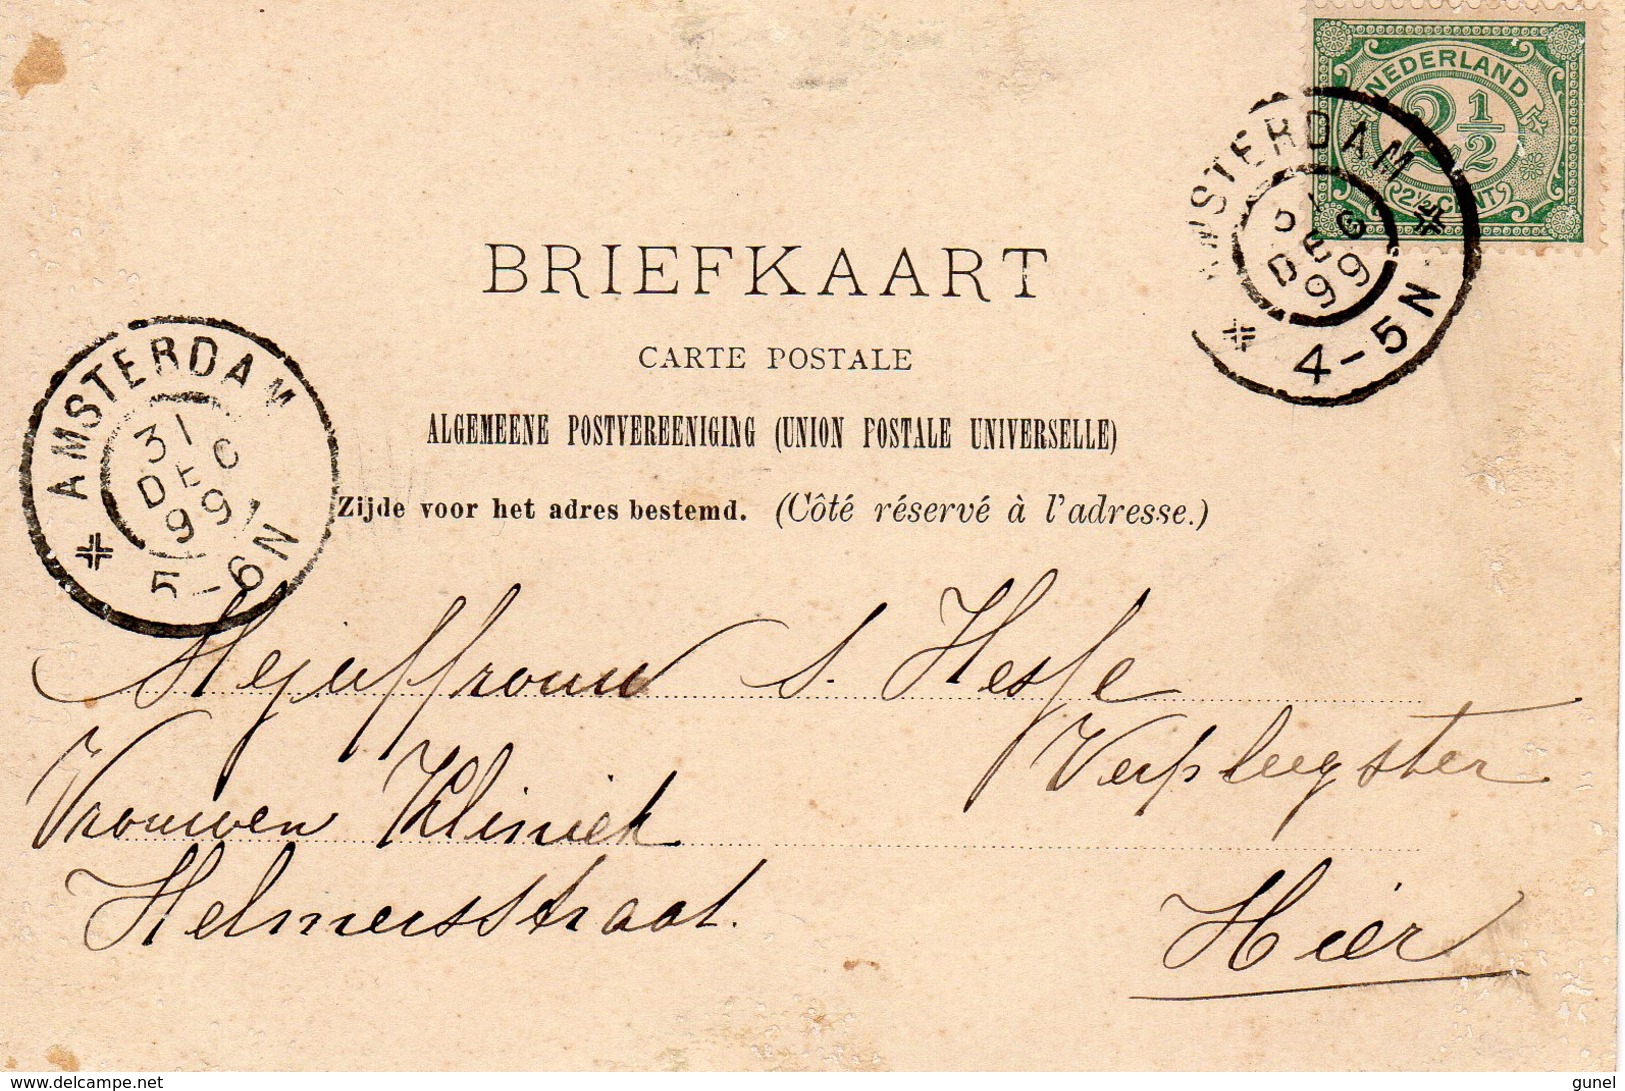 NEDERLAND
2 1/2
2½ CENT
AMSTERDAM
31 DEC 99
4-5N
BRIEFKAART
CARTE POSTALE
ALGEMEENE POSTVEREENIGING (UNION POSTALE UNIVERSELLE)
Zijde voor het adres bestemd. (Côté réservé à l'adresse.)
AMSTERDAM
31
DEC
99
5-6N
Mejuffrouw S. Hesse
Verpleegster
Vrouwen Kliniek
Helmersstraat.
Hier
www.delcampe.net
gunel